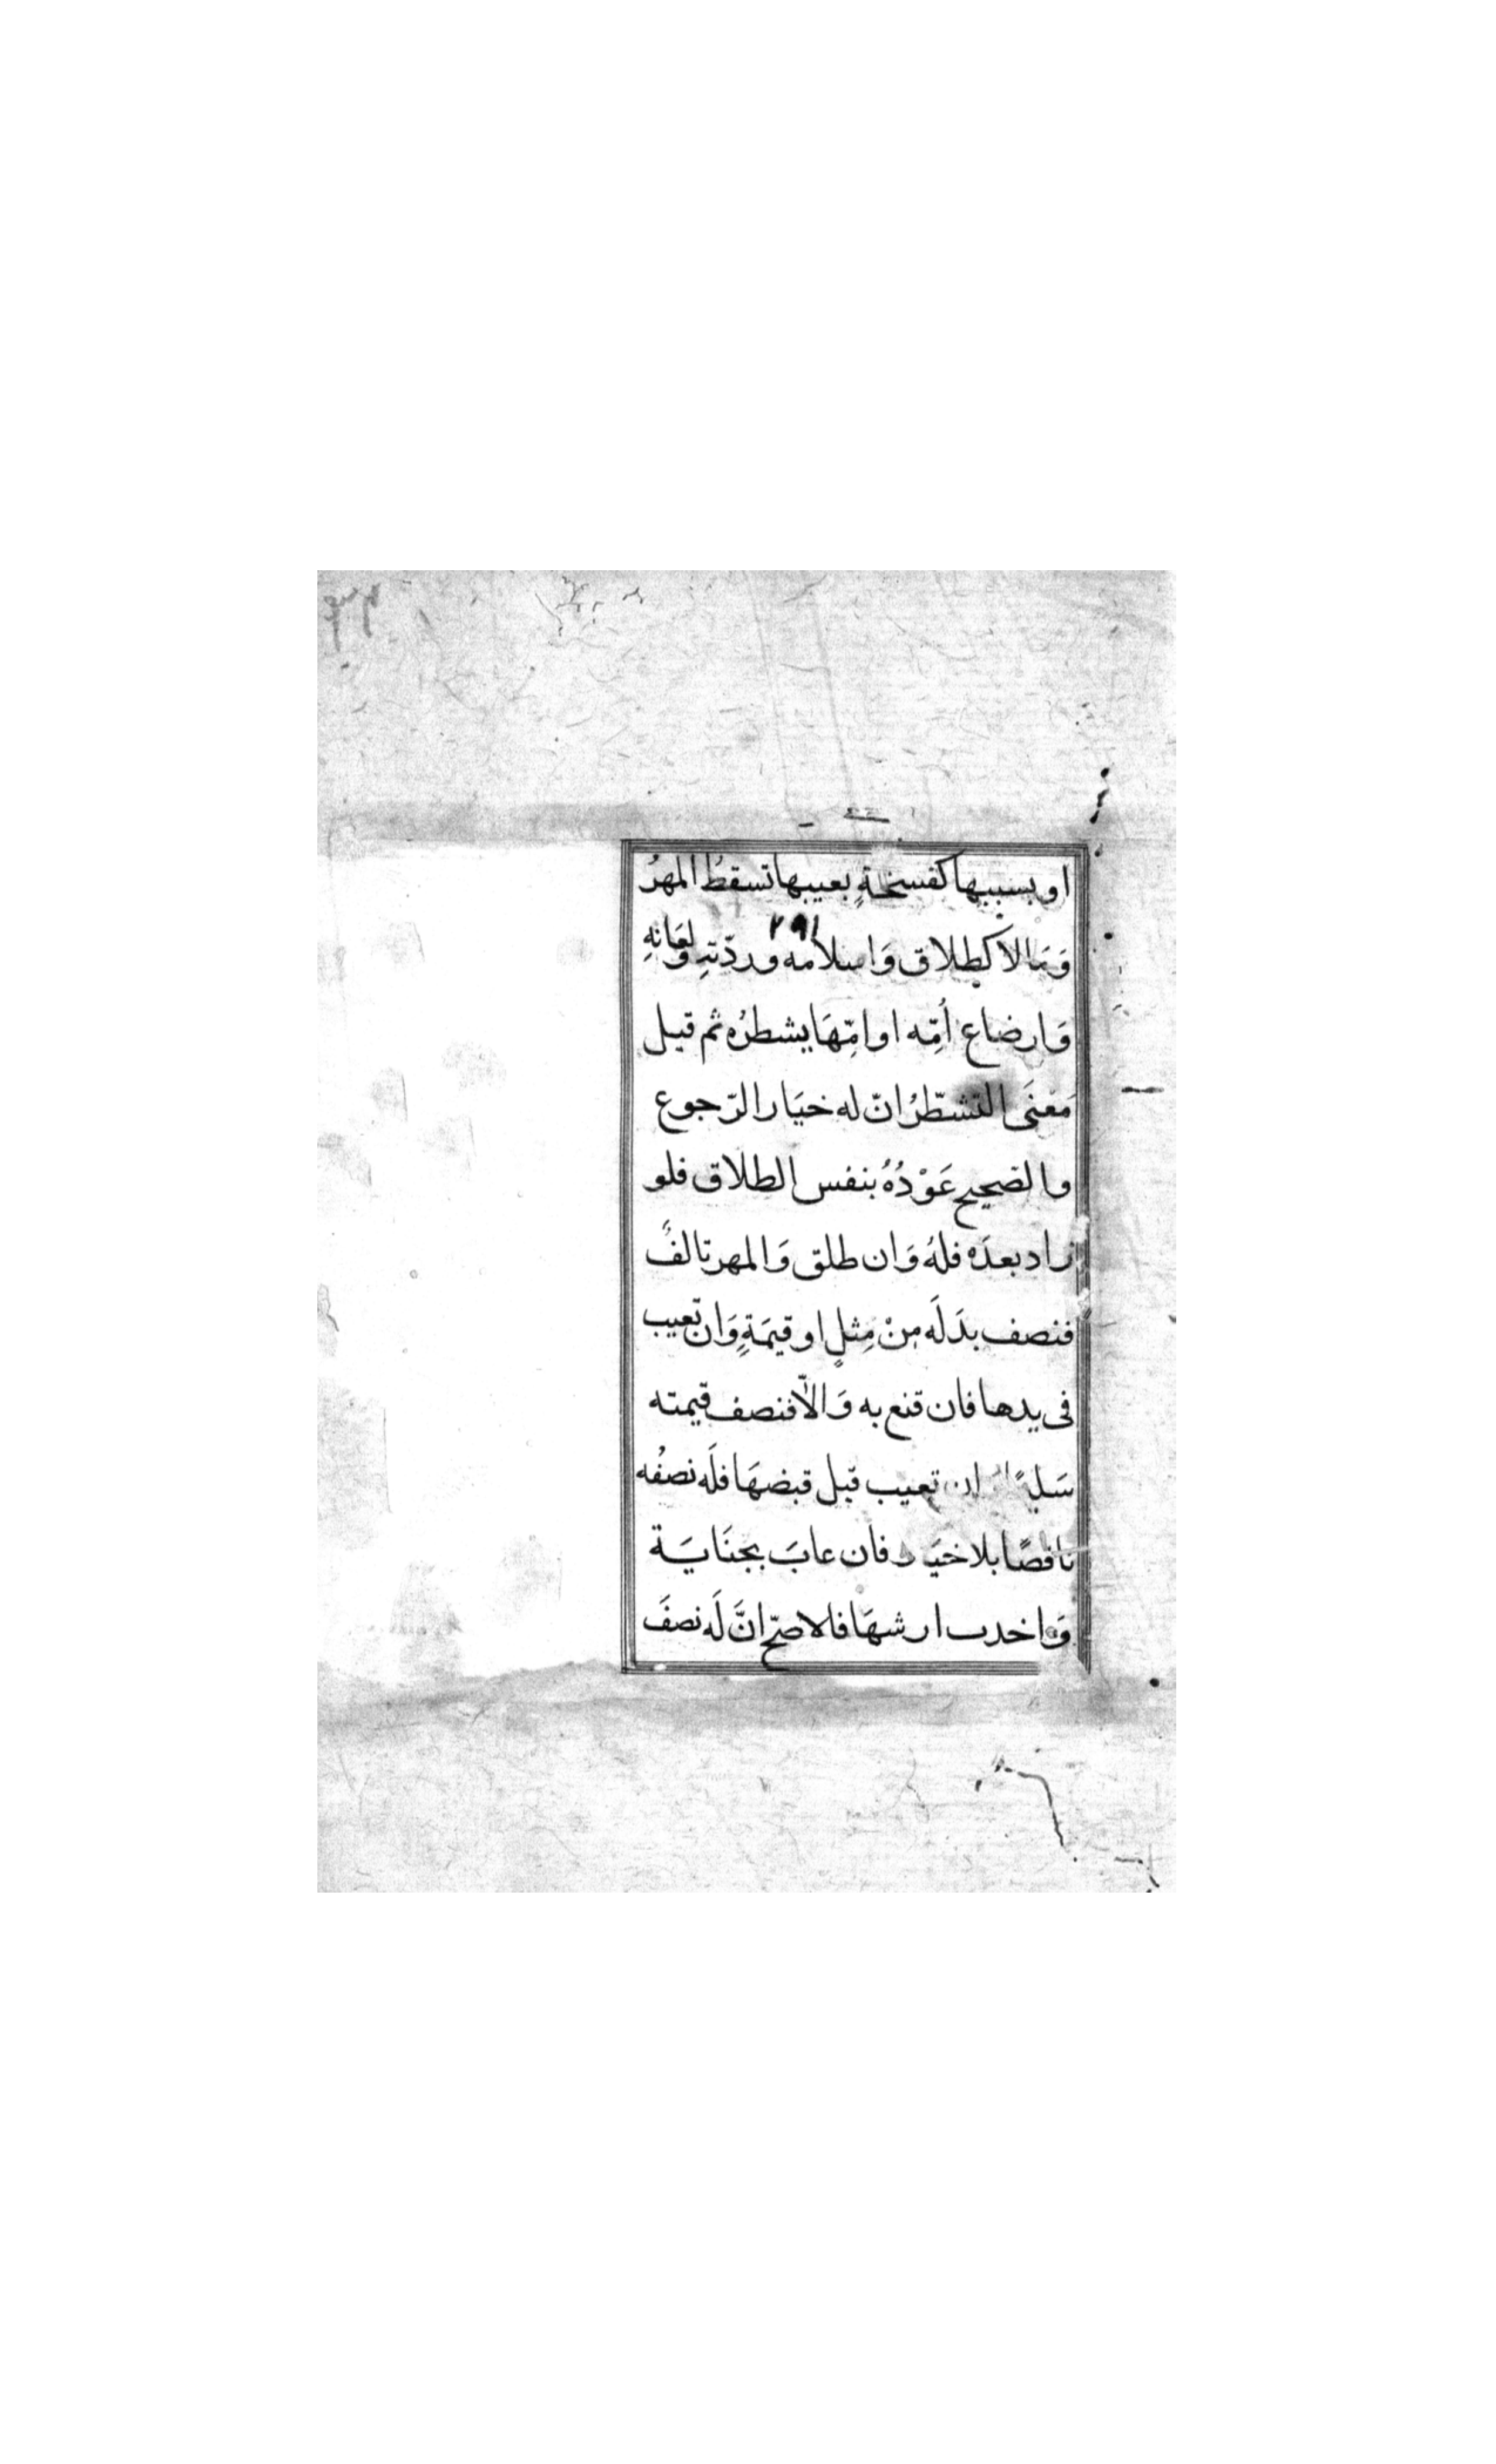 او بسببها كفسخةٍ بعيبها تسقطُ المهرُ
٢٩١
وَمَا لا كطلاق وَاسلامه وردّتهِ ولعَانهِ
وَارضاع أُمِّه او امِّهَا يشطرُه ثم قيل
مَعْنَى التشطّرُ انّ له خيَار الرّجوع
والصحيح عَوْدُهُ بنفس الطلاق فلو
زاد بعدَه فلهُ وَان طلق وَالمهر تالفٌ
فنصف بدَله مِنْ مِثلٍ او قيمَةٍ وَان تعيب
فى يدها فان قنع به وَالاّ فنصف قيمته
ان تعيب قبل قبضهَا فلَه نصفُه
ناقصًا بلا خيَار فان عابَ بجنَايَة
وَاخدت ارشهَا فالاصحّ انَّ لَه نصفَ